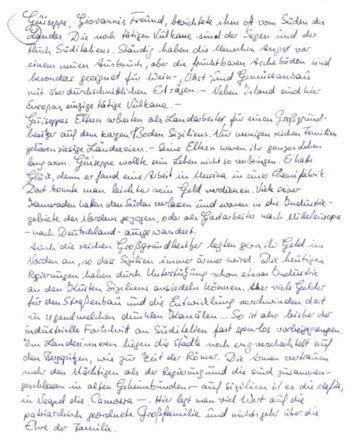 Guiseppe, Giovannis Freund, berichtete ihm oft vom Süden des
Landes. Die noch tätigen Vulkane sind der Segen und der
Fluch Süditaliens. Ständig haben die Menschen Angst vor
einem neuen Ausbruch, aber die fruchtbaren Ascheböden sind
besonders geeignet für Wein-, Obst- und Gemüseanbau
mit überdurchschnittlichen Erträgen. – Neben Island sind hier
Europas einzige tätige Vulkane. –
Guiseppes Eltern arbeiten als Landarbeiter für einen Großgrund-
besitzer auf den kargen Böden Siziliens. Nur wenigen reichen Familien
gehören riesige Ländereien. – Seine Eltern waren ihr ganzes Leben
lang arm. Guiseppe wollte sein Leben nicht so verbringen. Er hatte
Glück, denn er fand eine Arbeit in Messina in einer Chemiefabrik.
Dort konnte man leichter sein Geld verdienen. Viele seiner
Kameraden hatten den Süden verlassen und waren in die Industrie-
gebiete des Nordens gezogen, oder als Gastarbeiter nach Mitteleuropa
– nach Deutschland – ausgewandert.
Auch die reichen Großgrundbesitzer legten gern ihr Geld im
Norden an, so das Sizilien immer ärmer wird. Die heutigen
Regierungen haben durch Unterstützung schon etwas Industrie
an den Küsten Siziliens ansiedeln können. Aber viele Gelder
für den Straßenbau und die Entwicklung verschwinden dort
in irgendwelchen dunklen Kanälen... So ist also leider der
industrielle Fortschritt an Süditalien fast spurlos vorbeigegangen.
Im Landesinneren liegen die Städte noch eng verschachtelt auf
den Bergspitzen, wie zur Zeit der Römer. Die Armen vertrauen
mehr den Mächtigen als der Regierung und die sind zusammen-
geschlossen in alten Geheimbünden – auf Sizilien ist es die Mafia,
in Neapel die Camorra –. Hier legt man viel Wert auf die
patriarchisch geordnete Großfamilie und nichts geht über die
Ehre der Familie.